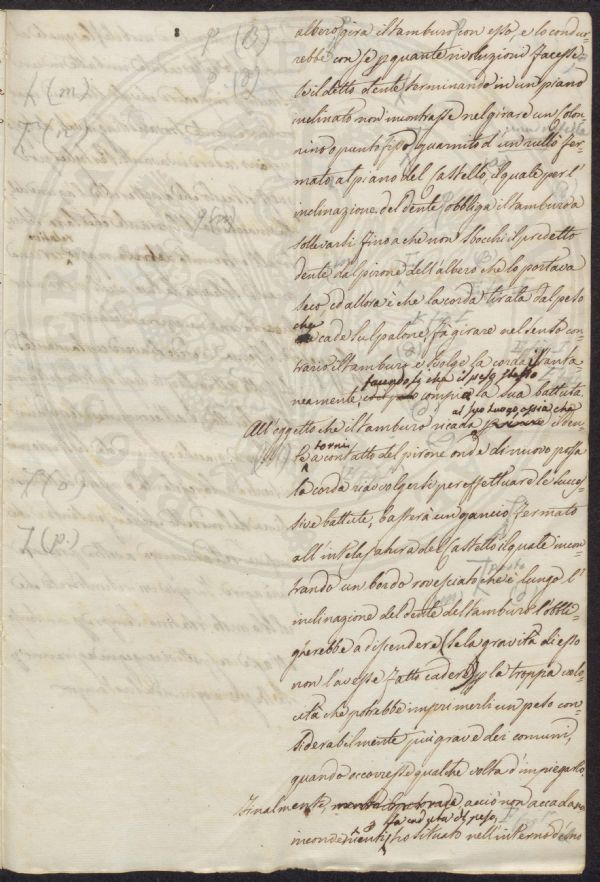 albero, gira il tamburo con esso, e lo condur-
rebbe con se p. quante rivoluzioni facesse
se il detto dente terminando in un piano
inclinato non incontrasse nel girare un Colon-
nino o punto fisso guarnito d'un rullo fer-
mato al piano del Castello, il quale per l'
inclinazione del dente, obbliga il tamburo a
sollevarsi fino a che non sbocchi il predetto
dente dal pirone dell'albero che lo portava
seco, ed allora è che la corda tirata dal peso
che cade sul palone, fa girare nel senso con-
trario il tamburo e svolge la corda istanta-
neamente, facendosi che il peso stesso compia la sua battuta.
All'oggetto che il tamburo ricada al suo luogo, ossia che il den-
te torni a contatto del pirone onde di nuovo possa
la corda riavvolgersi per effettuare le succes-
sive battute, basterà un gancio fermato
all'intelajatura del Castello il quale incon-
trando un bordo rovesciato che è lungo l'
inclinazione del dente del tamburo l'obbli-
gherebbe a discendere (se la gravità di esso
non l'avesse fatto cadere) p. la troppa velo-
cità che potrebbe imprimerli un peso con-
siderabilmente più grave dei comuni,
quando occorresse qualche volta d'impiegarlo.
Finalmente, acciò non accadano
inconvenienti, la caduta del peso, ho situato nell'interno del
p (B)
(m)
(n)
q (m)
Z (p.)